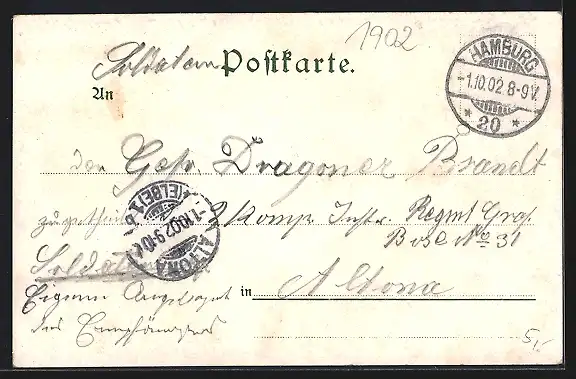 1902
Soldaten Postkarte.
HAMBURG
-1.10.02.8-9V.
* 20 *
An
den Gefr. Dragoner Brandt
zugetheilt 2 Komp. Inftr. Regmt Graf
Bose No 31
ALTONA
-1.10.02.9-10V.
(ELBE) 1
Soldaten
in Altona
Eigene Angelegenheit
des Empfängers
5,-